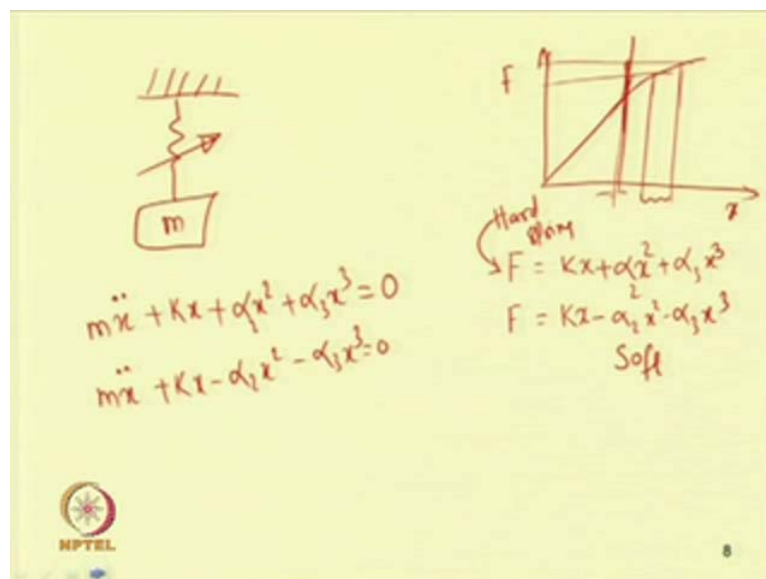 m
mẍ + Kx + α₂x² + α₃x³ = 0
mẍ + Kx - α₂x² - α₃x³ = 0
F
x
Hard
F = Kx + αx² + α₃x³
2
F = Kx - α₂x² - α₃x³
Soft
NPTEL
8